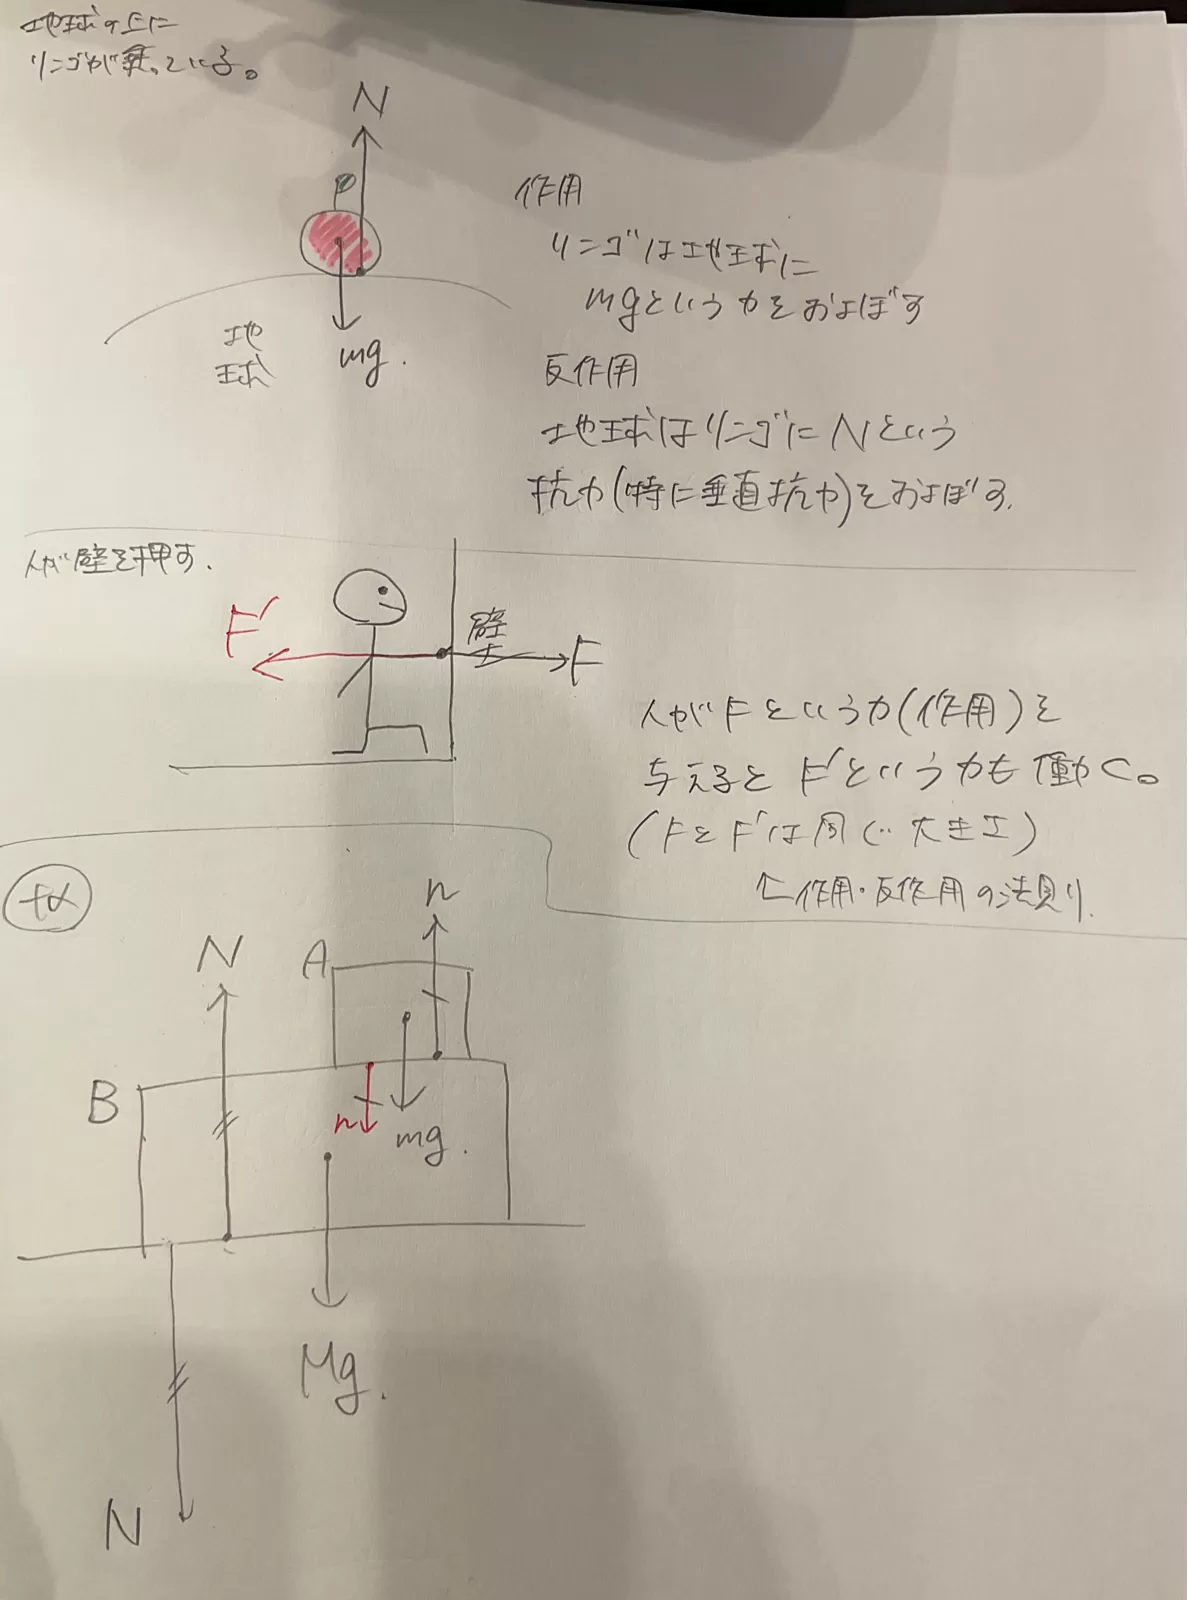 地球の上に
リンゴが乗っている。
N
作用
リンゴは地球に
mgという力をおよぼす
地
球
mg.
反作用
地球はリンゴにNという
抗力(特に垂直抗力)をおよぼす.
人が壁を押す.
F'
壁
F
人がFという力(作用)を
与えるとF'という力も働く。
(FとF'は同じ大きさ)
↑作用・反作用の法則.
n
N
A
B
n
mg.
Mg.
N